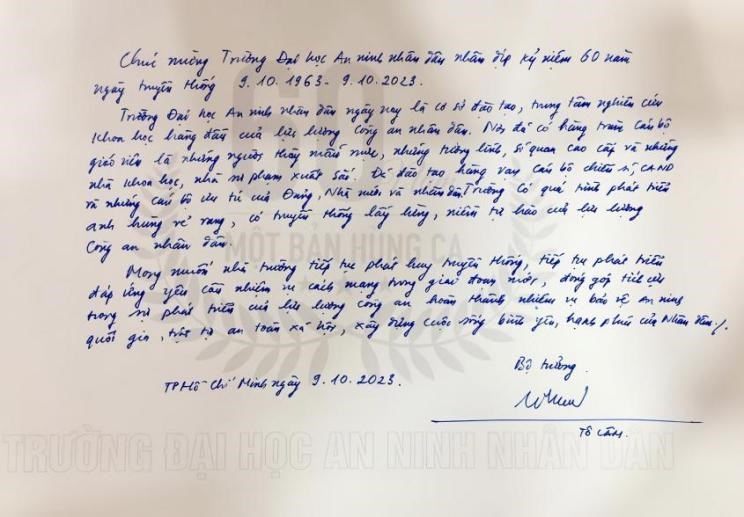 Chúc mừng Trường Đại học An ninh nhân dân nhân dịp kỷ niệm 60 năm
ngày truyền thống 9.10.1963 - 9.10.2023.
Trường Đại học An ninh nhân dân ngày nay là cơ sở đào tạo, trung tâm nghiên cứu
khoa học hàng đầu của lực lượng Công an nhân dân. Nơi đã có hàng trăm cán bộ
giáo viên là những người thầy mẫu mực, những tướng lĩnh, sĩ quan cao cấp và những
nhà khoa học, nhà sư phạm xuất sắc. Đã đào tạo hàng vạn cán bộ chiến sĩ CAND
và những cán bộ ưu tú của Đảng, Nhà nước và nhân dân. Trường có quá trình phát triển
anh hùng vẻ vang, có truyền thống lẫy lừng, niềm tự hào của lực lượng
Công an nhân dân.
Mong muốn nhà trường tiếp tục phát huy truyền thống, tiếp tục phát triển
đáp ứng yêu cầu nhiệm vụ cách mạng trong giai đoạn mới, đóng góp tích cực
trong sự phát triển của lực lượng công an hoàn thành nhiệm vụ bảo vệ An ninh
quốc gia, trật tự an toàn xã hội, xây dựng cuộc sống bình yên, hạnh phúc của Nhân dân./.
TP Hồ Chí Minh ngày 9.10.2023.
Bộ trưởng
Tô Lâm.
60
MỘT BẢN HÙNG CA
TRƯỜNG ĐẠI HỌC AN NINH NHÂN DÂN